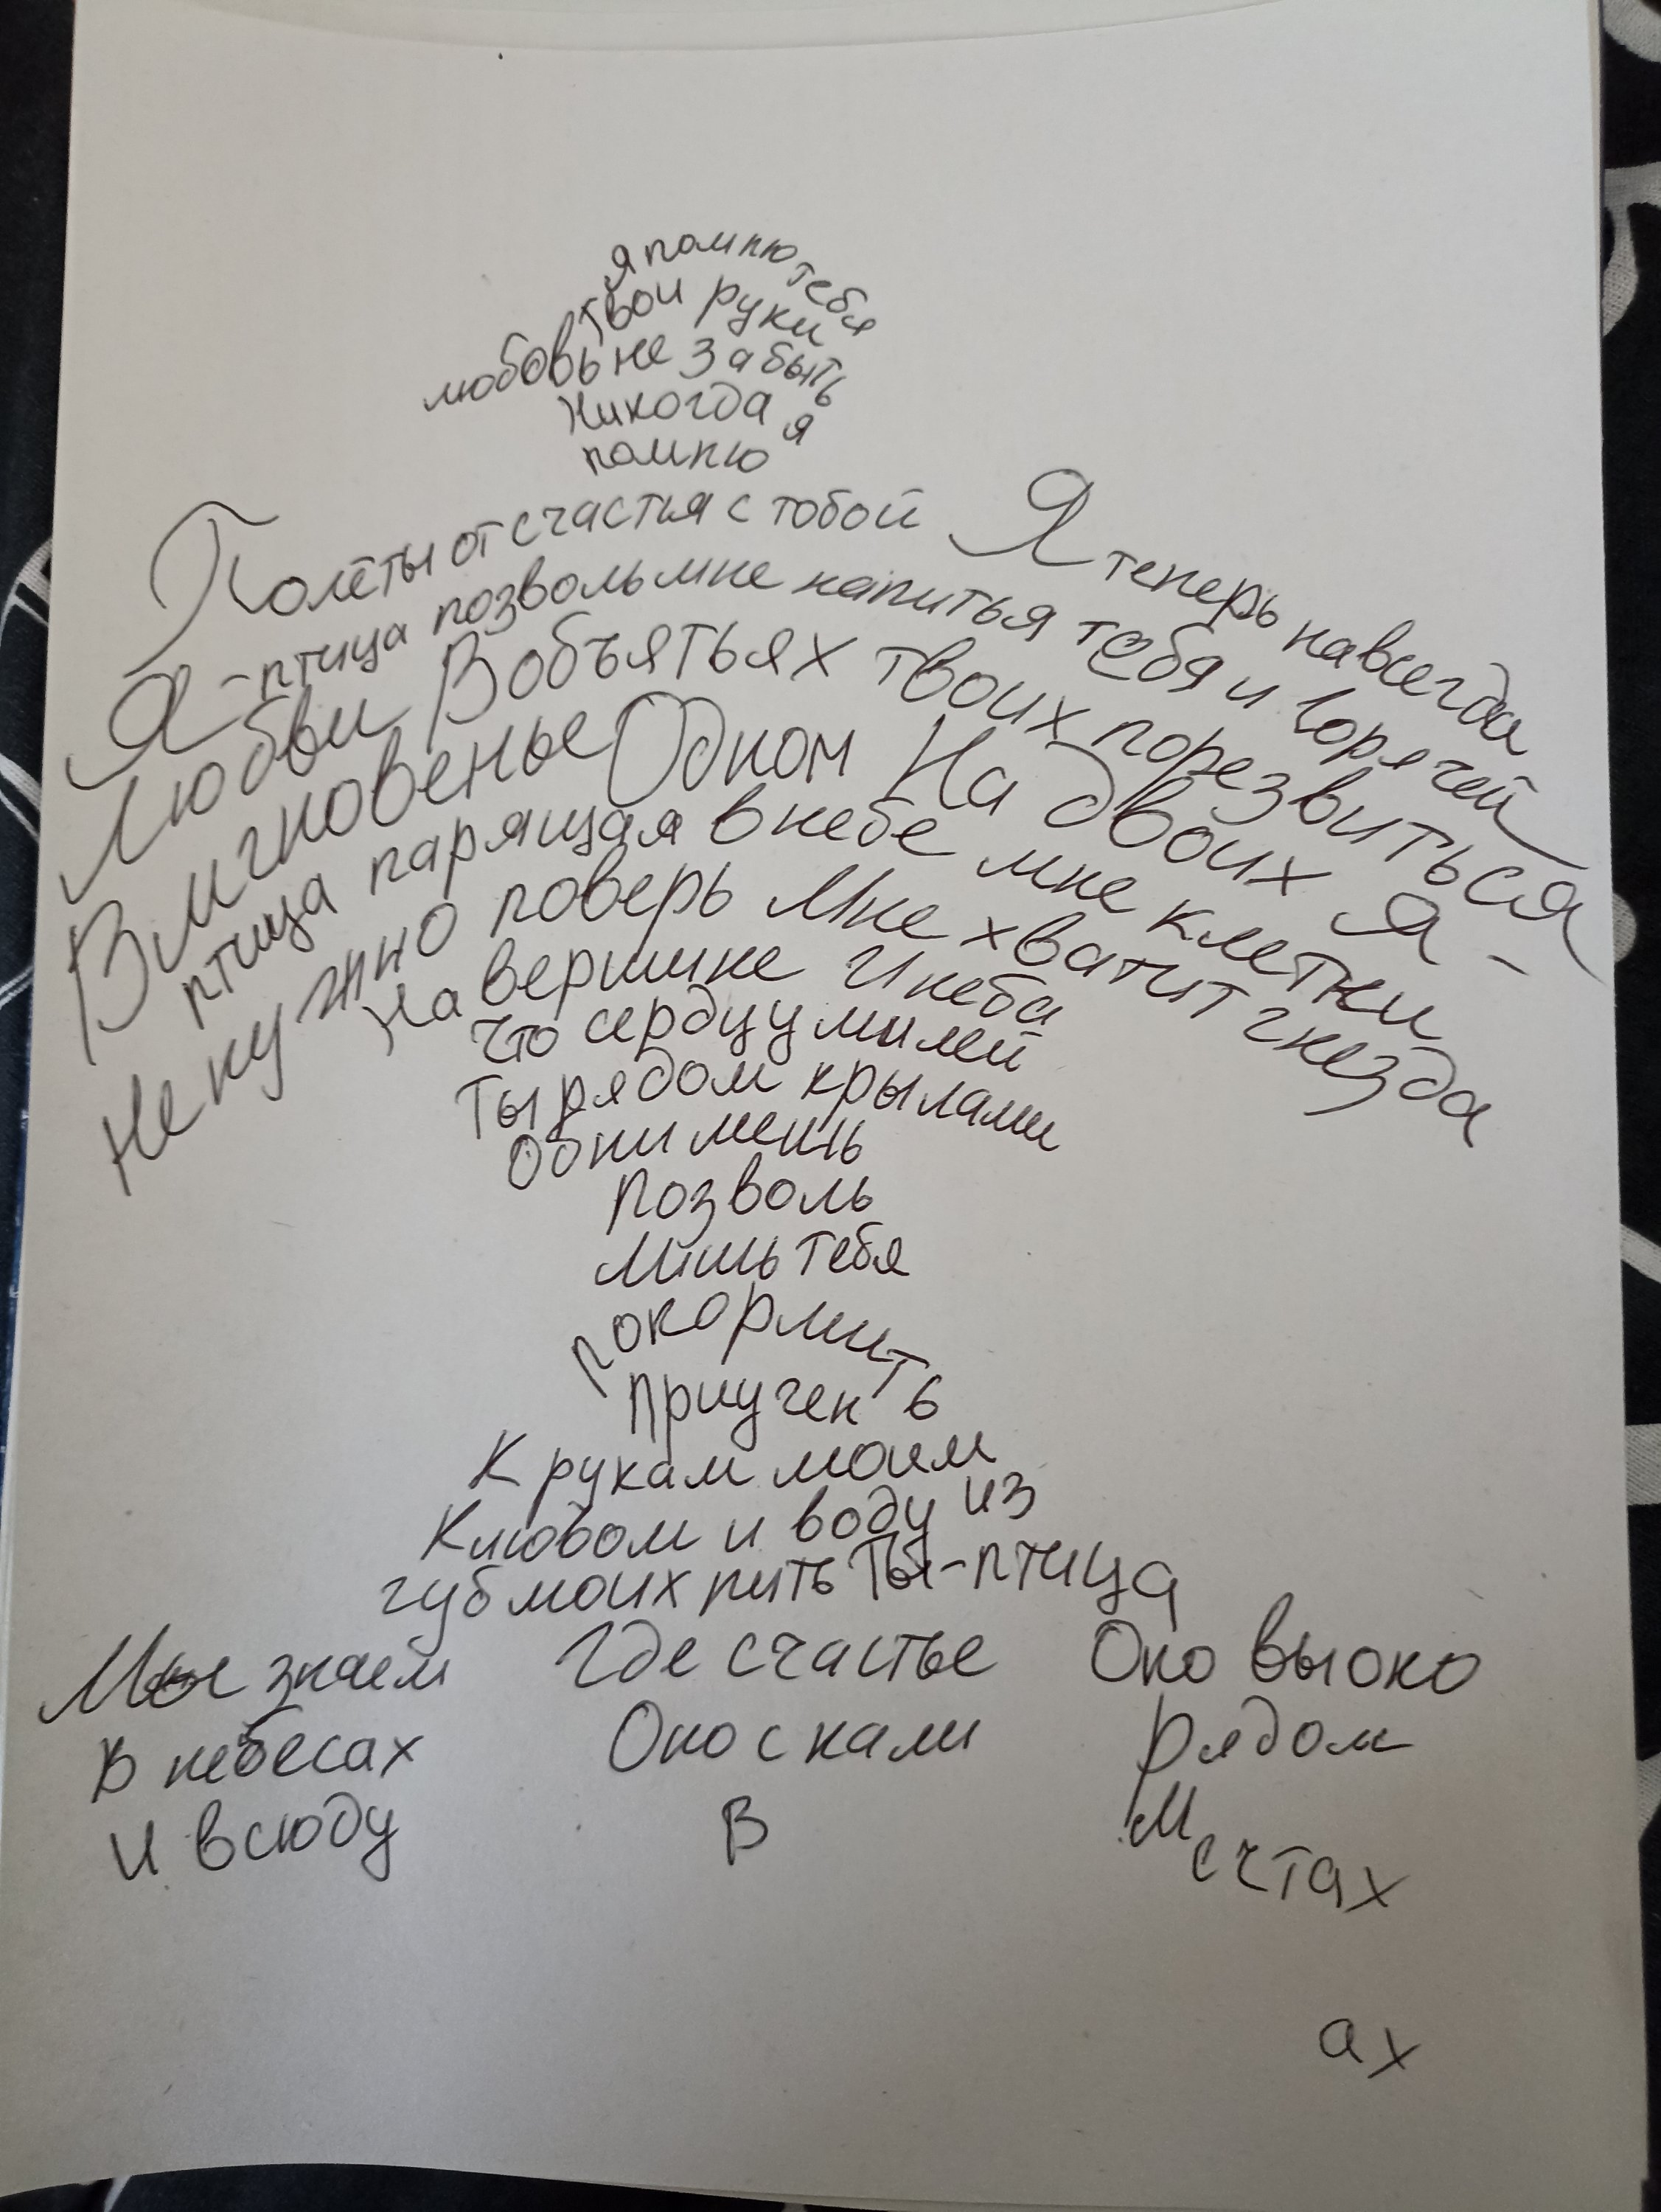 я помню тебя
твои руки
любовь не забыть
Никогда я
помню
Полёты от счастья с тобой Я теперь навсегда
Я - птица позволь мне напитья тебя и горячей
Любви В объятьях твоих порезвиться
В мгновенье Одном На двоих Я -
птица парящая в небе мне клетки
Не нужно поверь Мне хватит гнезда
На вершине И неба
Что сердцу милей
Ты рядом крылами
Обнимешь
Позволь
Лишь тебя
покормить
Приучен
К рукам моим
Клювом и воду из
губ моих пить Ты - птица
Мы знаем Где счастье Оно выоко
В небесах Оно с нами Рядом
И всюду В Мечтах
ах